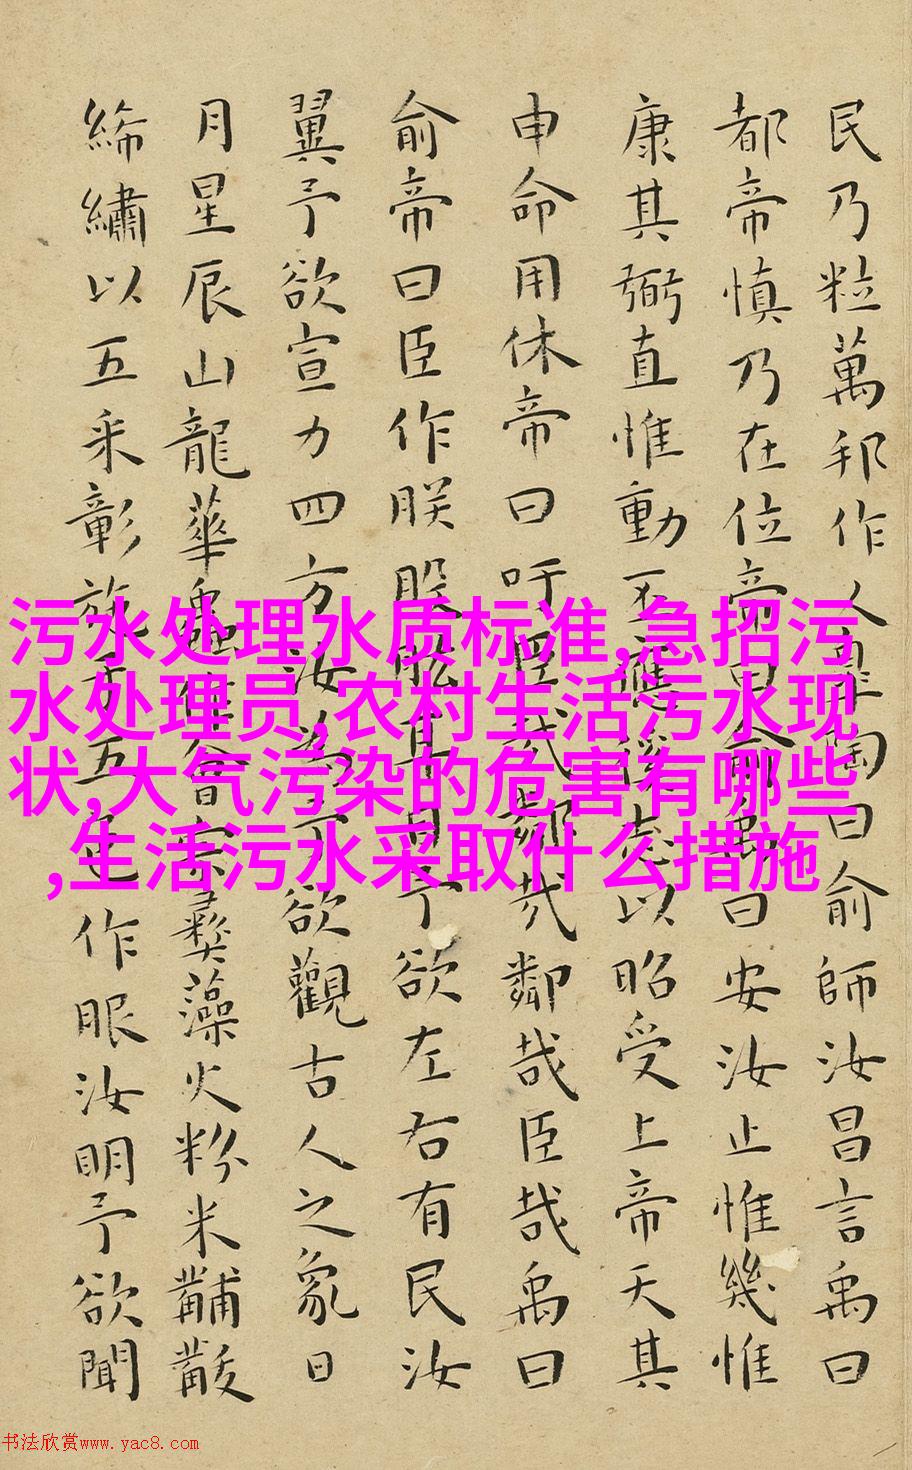 民乃粒萬邦作乂皋陶曰俞師汝昌言禹曰
都帝慎乃在位帝曰俞禹曰安汝止惟幾惟
康其弼直惟動丕應徯志以昭受上帝天其
申命用休帝曰吁臣哉鄰哉鄰哉臣哉禹曰
俞帝曰臣作朕股肱耳目予欲左右有民汝
翼予欲宣力四方汝為予欲觀古人之象日
月星辰山龍華蟲作會宗彝藻火粉米黼黻
絺繡以五采彰施于五色作服汝明予欲聞
污水处理水质标准,急招污
水处理员,农村生活污水现
状,大气污染的危害有哪些
,生活污水采取什么措施
书法欣赏www.yac8.com